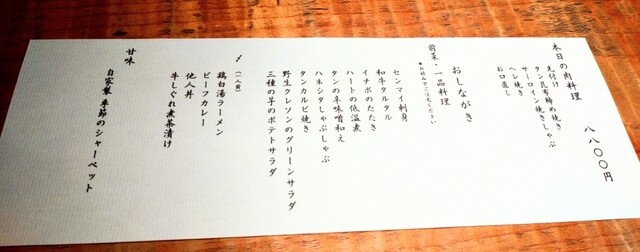 本日の肉料理　八八〇〇円
先付け
タン昆布締め焼き
サーロイン焼きしゃぶ
ヘレ焼き
お口直し
おしながき
前菜・一品料理
●お好みでご注文ください
センマイ刺身
和牛タルタル
イチボのたたき
ハートの低温煮
タンの辛味噌和え
ハネシタしゃぶしゃぶ
タンカルビ焼き
野生クレソンのグリーンサラダ
三種の芋のポテトサラダ
〆（一人前）
鶏白湯ラーメン
ビーフカレー
他人丼
牛しぐれ煮茶漬け
甘味
自家製 季節のシャーベット